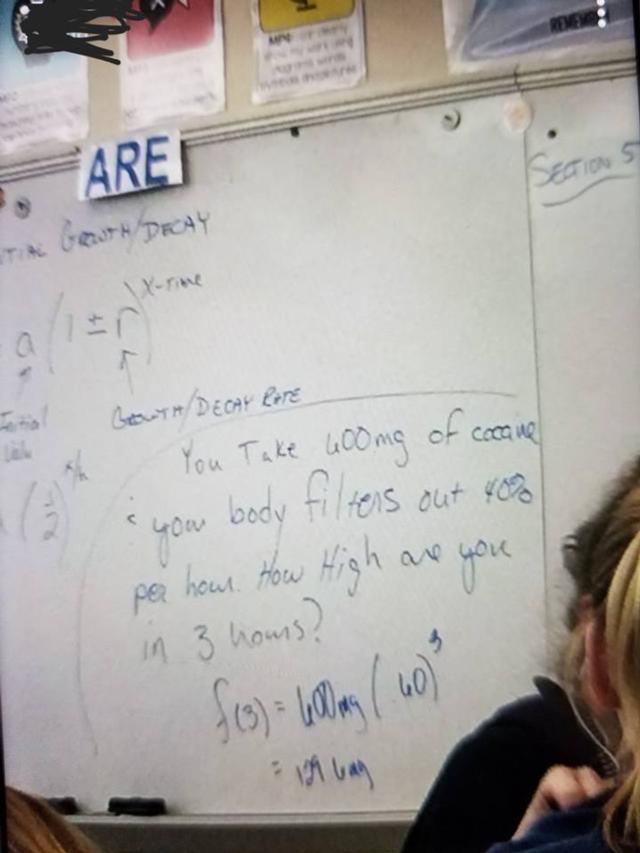 REMEMB
MP4
show my work using
ARE
SECTION 5
NTIAL GROWTH/DECAY
a(1 ± r) X-TIME
Initial
GROWTH/DECAY RATE
(1/2)
You Take 600mg of cocaine
& your body filters out 40%
per hour. How High are you
in 3 hours?
f(3) = 600mg (.60)³
= 129.6mg